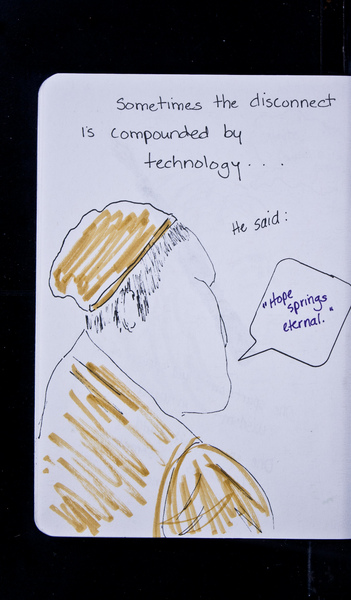 Sometimes the disconnect
Is compounded by
technology...
He said:
"Hope
springs
eternal."